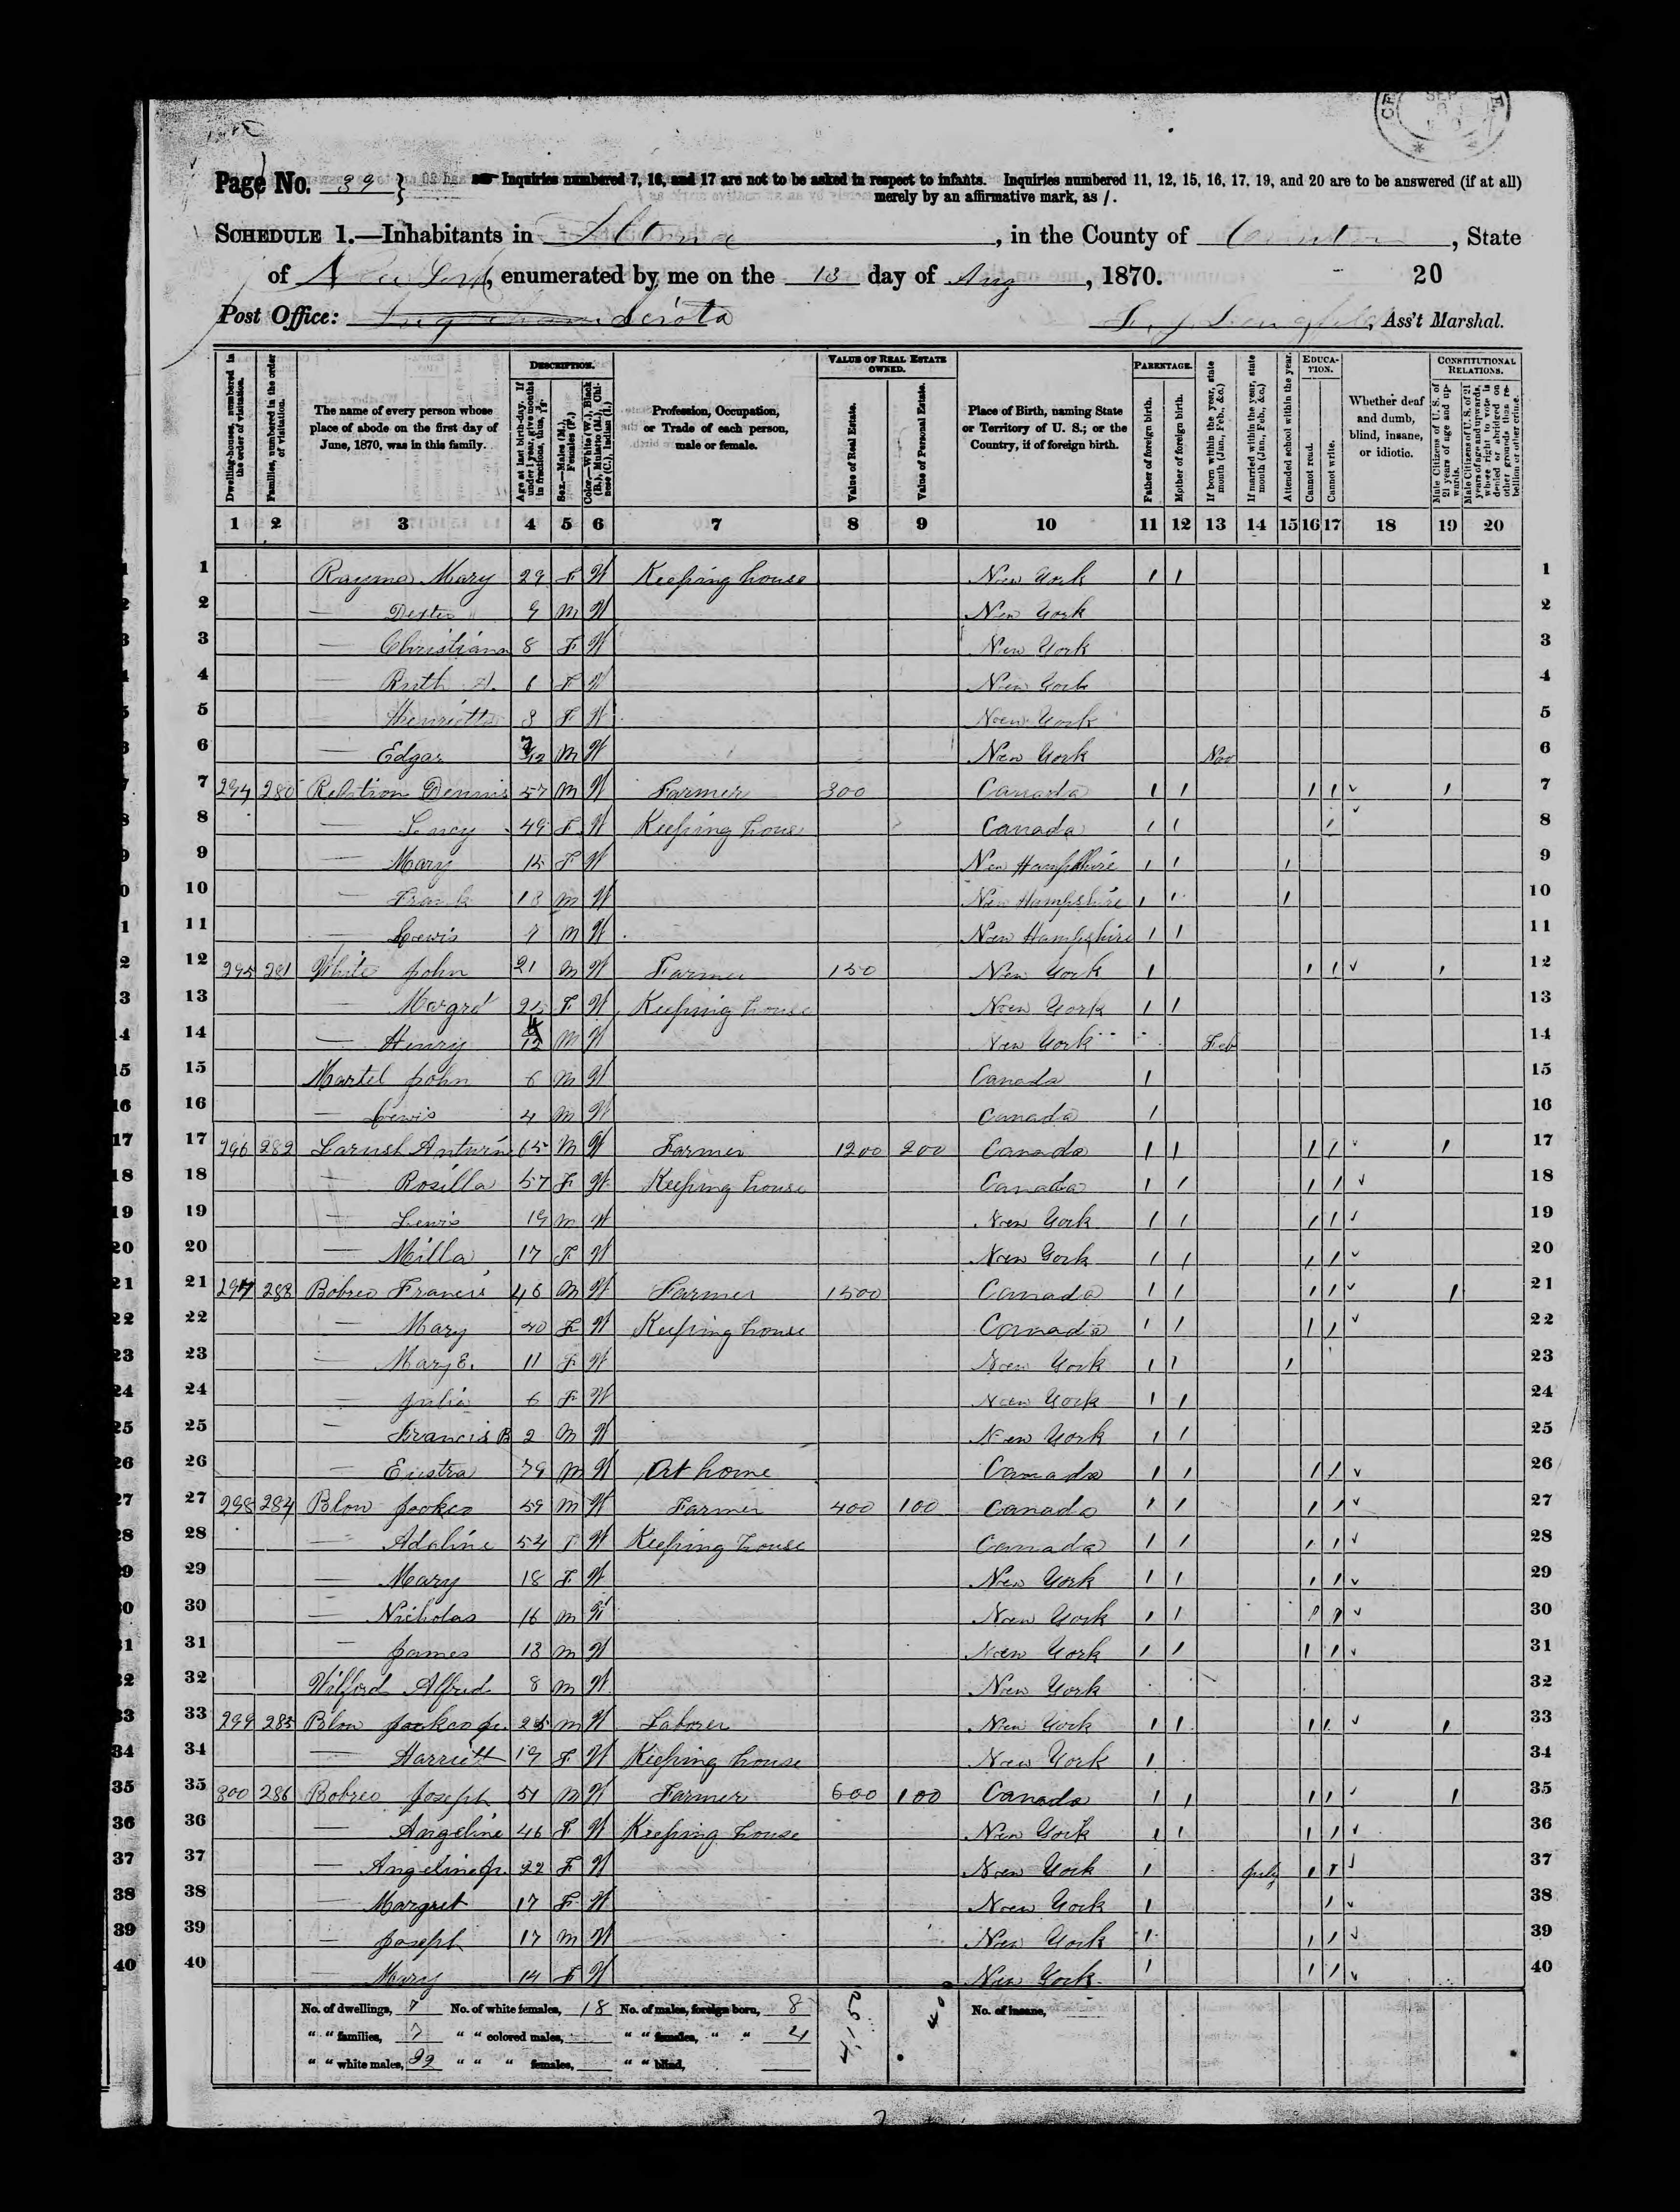 Page No. 39 } Inquiries numbered 7, 16, and 17 are not to be asked in respect to infants. Inquiries numbered 11, 12, 15, 16, 17, 19, and 20 are to be answered (if at all)
merely by an affirmative mark, as /.
SCHEDULE 1.—Inhabitants in Altona, in the County of Clinton, State
of New York, enumerated by me on the 13 day of Aug, 1870. 20
Post Office: Sciota , Ass't Marshal.
DESCRIPTION. VALUE OF REAL ESTATE OWNED. PARENTAGE. EDUCATION. CONSTITUTIONAL RELATIONS.
Dwelling-houses, numbered in the order of visitation.
Families, numbered in the order of visitation.
The name of every person whose place of abode on the first day of June, 1870, was in this family.
Age at last birth-day. If under 1 year, give months in fractions, thus, 
Sex.—Males (M.), Females (F.)
Color.—White (W.), Black (B.), Mulatto (M.), Chinese (C.), Indian (I.)
Profession, Occupation, or Trade of each person, male or female.
Value of Real Estate.
Value of Personal Estate.
Place of Birth, naming State or Territory of U. S.; or the Country, if of foreign birth.
Father of foreign birth.
Mother of foreign birth.
If born within the year, state month (Jan., Feb., &c.)
If married within the year, state month (Jan., Feb., &c.)
Attended school within the year.
Cannot read.
Cannot write.
Whether deaf and dumb, blind, insane, or idiotic.
Male Citizens of U. S. of 21 years of age and upwards.
Male Citizens of U. S. of 21 years of age and upwards, whose right to vote is denied or abridged on other grounds than rebellion or other crime.
1 2 3 4 5 6 7 8 9 10 11 12 13 14 15 16 17 18 19 20
1 Raymo Mary 29 F W Keeping house New York / / 1
2 — Dexter 9 M W New York 2
3 — Christiann 8 F W New York 3
4 — Ruth A. 6 F W New York 4
5 — Henrietta 3 F W New York 5
6 — Edgar 7/12 M W New York Nov 6
7 294 280 Dennis 57 M W Farmer 300 Canada / / / / ✓ / 7
8 — Lucy 49 F W Keeping house Canada / / / ✓ 8
9 — Mary 15 F W New Hampshire / / / 9
10 — Frank 13 M W New Hampshire / / / 10
11 — Lewis 7 M W New Hampshire / / 11
12 295 281 White John 21 M W Farmer 150 New York / / / ✓ / 12
13 — Margrt 25 F W Keeping house New York / / 13
14 — Henry 4/12 M W New York Feb 14
15 Martel John 6 M W Canada / 15
16 — Lewis 4 M W Canada / 16
17 296 282 Larush 65 M W Farmer 1200 200 Canada / / / / ✓ / 17
18 — Rosilla 57 F W Keeping house Canada / / / / ✓ 18
19 — Lewis 19 M W New York / / / / ✓ 19
20 — Milla 17 F W New York / / / / ✓ 20
21 297 283 Bobreo Francis 46 M W Farmer 1500 Canada / / / / ✓ / 21
22 — Mary 40 F W Keeping house Canada / / / / ✓ 22
23 — Mary E. 11 F W New York / / / 23
24 — Julia 6 F W New York / / 24
25 — Francis B 2 M W New York / / 25
26 — Eustra 79 M W At home Canada / / / / ✓ 26
27 298 284 Blow Jockco 59 M W Farmer 400 100 Canada / / / / ✓ 27
28 — Adaline 54 F W Keeping house Canada / / / / ✓ 28
29 — Mary 18 F W New York / / / / ✓ 29
30 — Nicholas 16 M W New York / / / / ✓ 30
31 — James 13 M W New York / / / / ✓ 31
32 Wilford Alfred 8 M W New York 32
33 299 285 Blow Jockco Jr. 25 M W Laborer New York / / / / ✓ / 33
34 — Harriett 19 F W Keeping house New York / 34
35 300 286 Bobreo Joseph 51 M W Farmer 600 100 Canada / / / / ✓ / 35
36 — Angeline 46 F W Keeping house New York / / / / ✓ 36
37 — Angeline Jr. 22 F W New York / July / / ✓ 37
38 — Margret 17 F W New York / / ✓ 38
39 — Joseph 17 M W New York / / / ✓ 39
40 — Mary 14 F W New York / / / ✓ 40
No. of dwellings, 7 No. of white females, 18 No. of males, foreign born, 8 4150 400 No. of insane,
" " families, 7 " " colored males, " " females, " " 4
" " white males, 22 " " " females, " " blind,